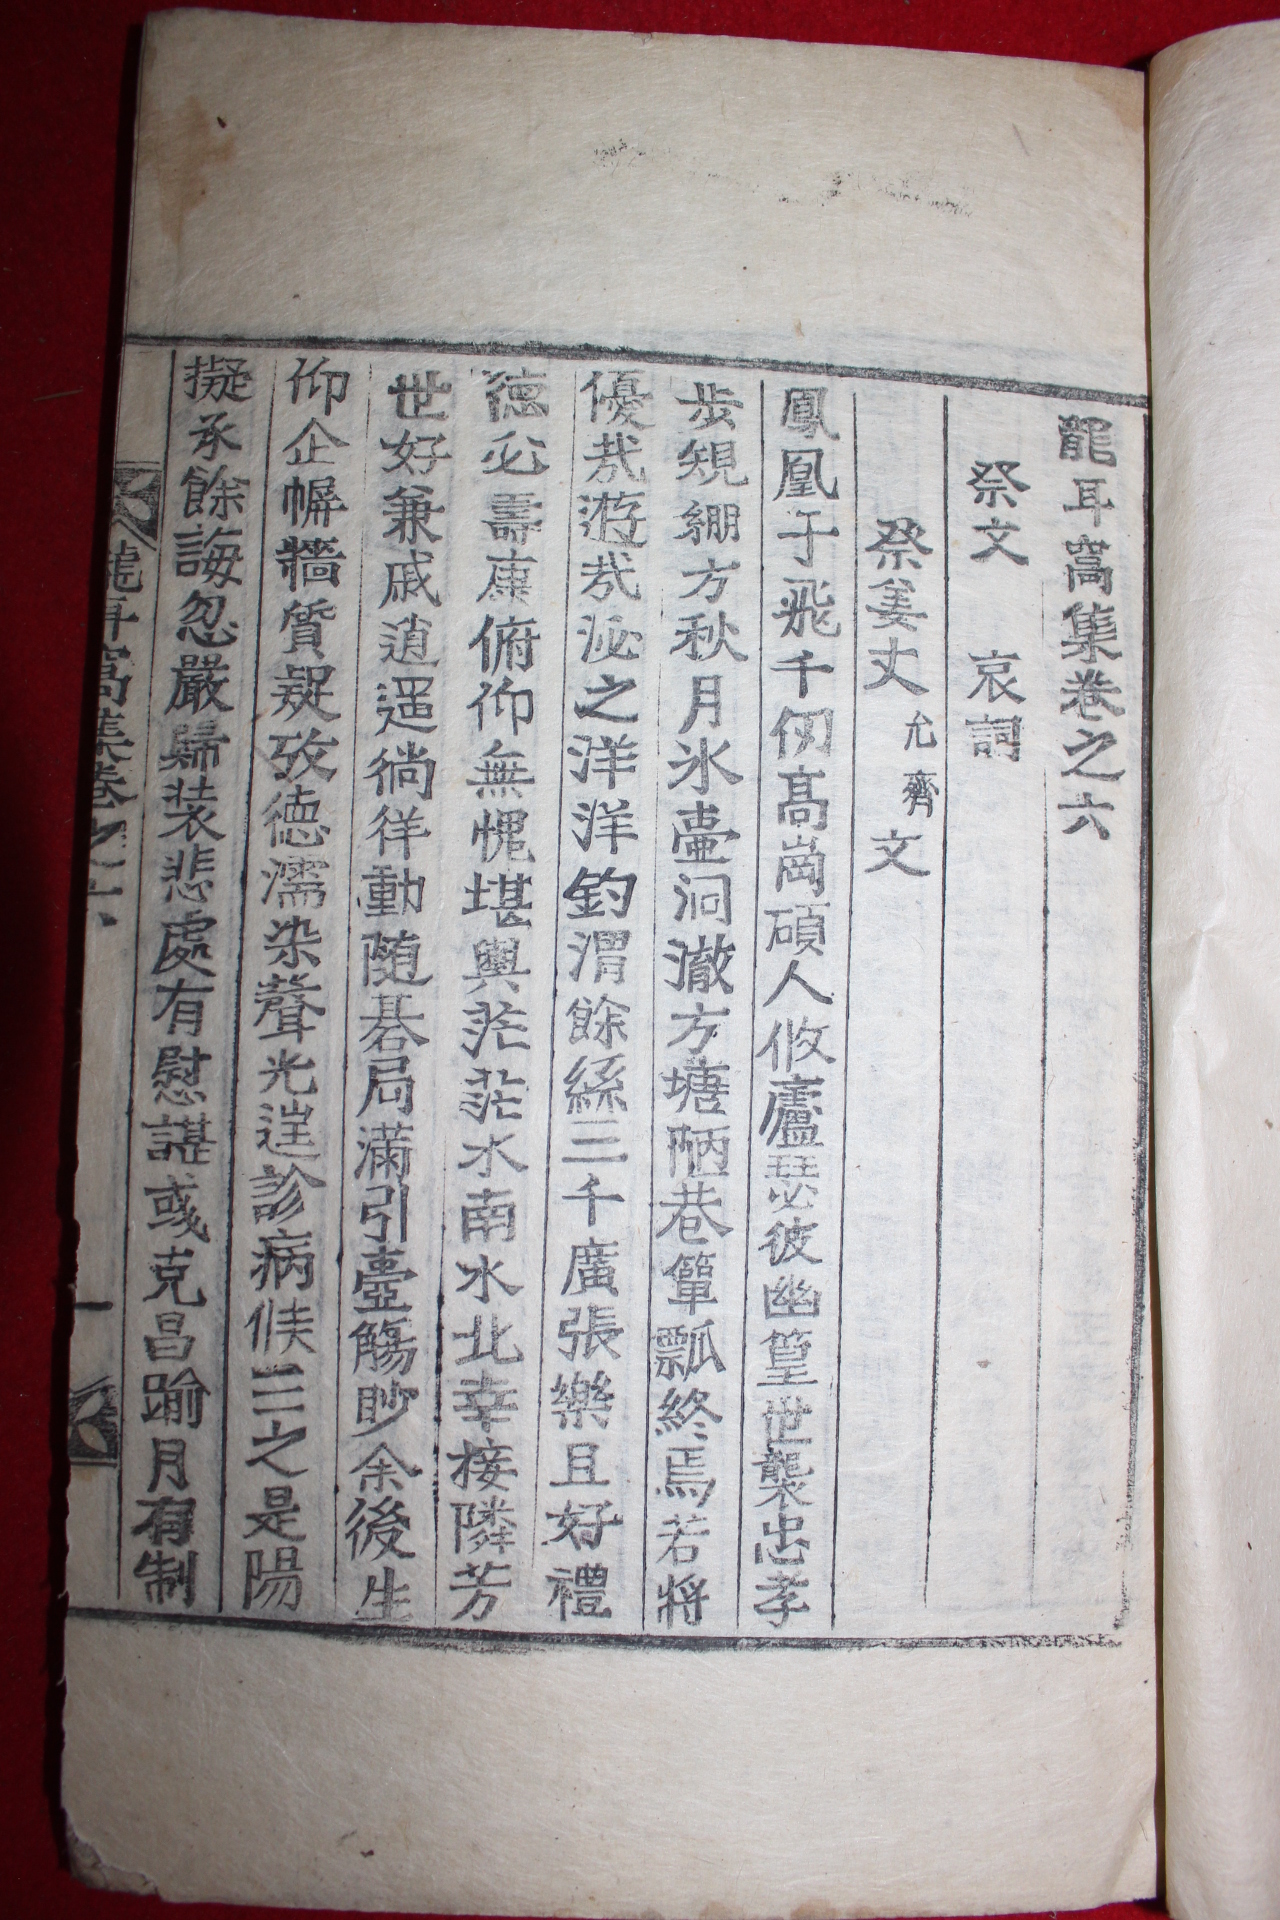 龍耳窩集卷之六
祭文 哀詞
祭姜丈允齊文
鳳凰于飛千仞高崗碩人攸廬瑟彼幽篁世襲忠孝
步規綳方秋月氷壺洞澈方塘陋巷簞瓢終焉若將
優哉遊哉泌之洋洋釣渭餘絲三千廣張樂且好禮
德必壽康俯仰無愧堪輿茫茫水南水北幸接隣芳
世好兼戚逍遥徜徉動随碁局滿引壺觴眇余後生
仰企幈牆質疑攷德濡染聲光逞診病候三之是陽
擬承餘誨忽嚴歸装悲處有慰諶彧克昌踰月有制
龍耳窩集卷之六 一